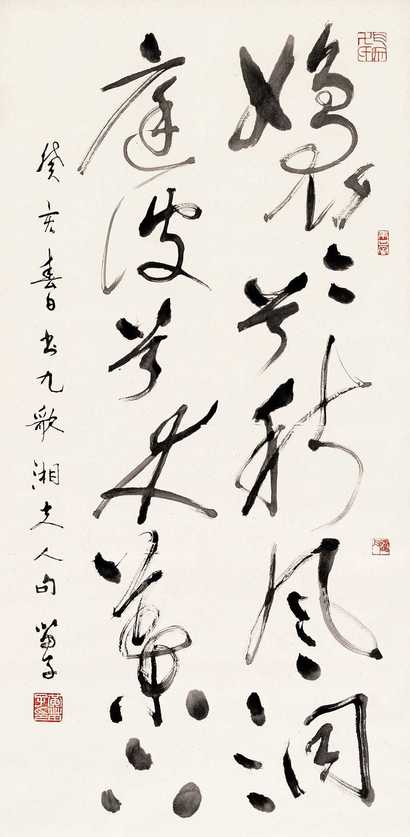 嬝々兮秋风洞
庭波兮木葉下
癸亥春日书九歌湘夫人句 苗子